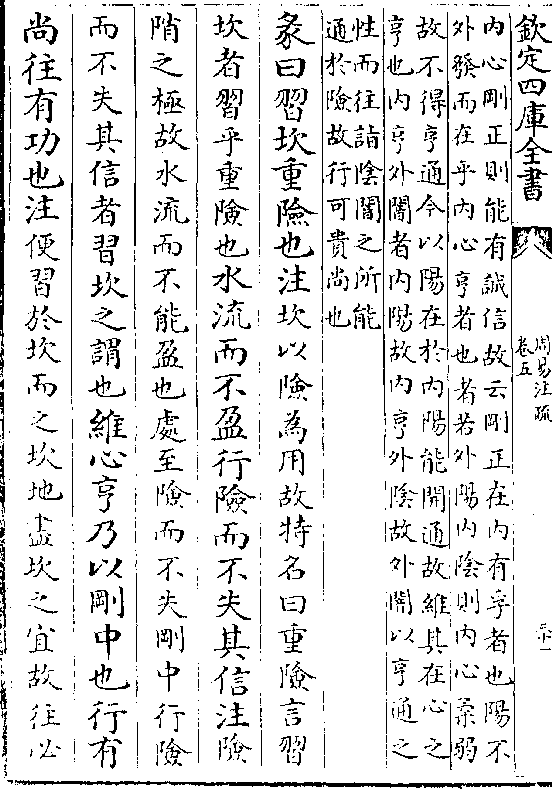 欽定四庫全書
周易注疏
卷五
內心剛正則能有誠信故云剛正在內有孚者也陽不
外發而在乎內心亨者也者若外陽內陰則內心柔弱
故不得亨通今以陽在於內陽能開通故維其在心之
亨也內亨外闇者內陽故內亨外陰故外闇以亨通之
性而往詣陰闇之所能
通於險故行可貴尚也
彖曰習坎重險也注坎以險為用故特名曰重險言習
坎者習乎重險也水流而不盈行險而不失其信注險
陗之極故水流而不能盈也處至險而不失剛中行險
而不失其信者習坎之謂也維心亨乃以剛中也行有
尚往有功也注便習於坎而之坎地盡坎之宜故往必